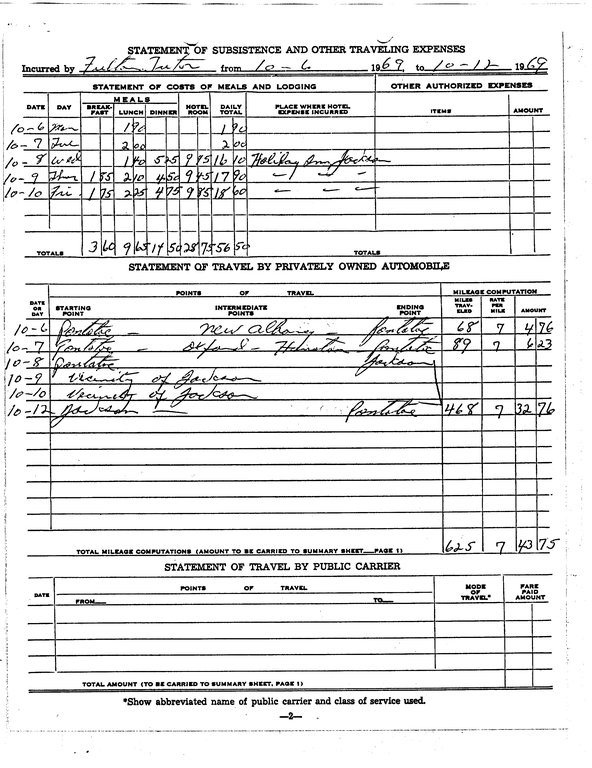 STATEMENT OF SUBSISTENCE AND OTHER TRAVELING EXPENSES
Incurred by Fulton Tutor from 10-6 1969, to 10-12 1969
STATEMENT OF COSTS OF MEALS AND LODGING OTHER AUTHORIZED EXPENSES
DATE DAY MEALS BREAK-FAST LUNCH DINNER HOTEL ROOM DAILY TOTAL PLACE WHERE HOTEL EXPENSE INCURRED ITEMS AMOUNT
10-6 Mon 1 90 1 90
10-7 Tue 2 00 2 00
10-8 Wed 1 40 5 25 9 45 16 10 Holiday Inn Jackson
10-9 Thur 1 85 2 10 4 50 9 45 17 90 — " — —
10-10 Fri. 1 75 2 25 4 75 9 85 18 60 — — —
TOTALS 3 60 9 65 14 50 28 75 56 50 TOTALS
STATEMENT OF TRAVEL BY PRIVATELY OWNED AUTOMOBILE
POINTS OF TRAVEL MILEAGE COMPUTATION
DATE OR DAY STARTING POINT INTERMEDIATE POINTS ENDING POINT MILES TRAV-ELED RATE PER MILE AMOUNT
10-6 Pontotoc — New Albany — Pontotoc 68 7 4 76
10-7 Pontotoc — Oxford — Houston — Pontotoc 89 7 6 23
10-8 Pontotoc Jackson
10-9 Vicinity of Jackson
10-10 Vicinity of Jackson
10-12 Jackson — Pontotoc 468 7 32 76
TOTAL MILEAGE COMPUTATIONS (AMOUNT TO BE CARRIED TO SUMMARY SHEET—PAGE 1) 625 7 43 75
STATEMENT OF TRAVEL BY PUBLIC CARRIER
DATE POINTS OF TRAVEL MODE OF TRAVEL* FARE PAID AMOUNT
FROM— TO—
TOTAL AMOUNT (TO BE CARRIED TO SUMMARY SHEET, PAGE 1)
*Show abbreviated name of public carrier and class of service used.
—2—